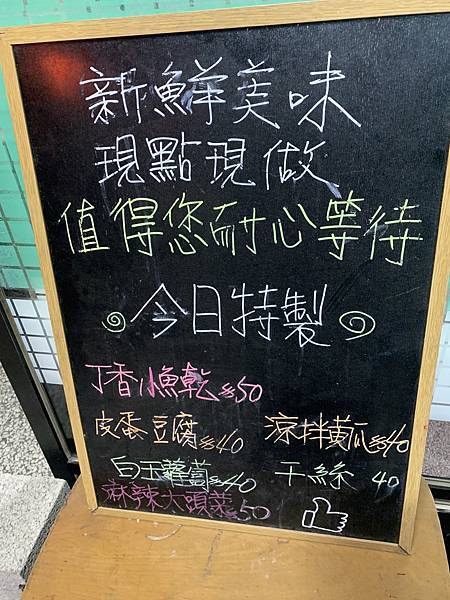 新鮮美味
現點現做
值得您耐心等待
今日特製
丁香小魚乾$50
皮蛋豆腐$40 涼拌黃瓜$40
白玉蘿蔔$40 干絲 40
麻辣大頭菜$50